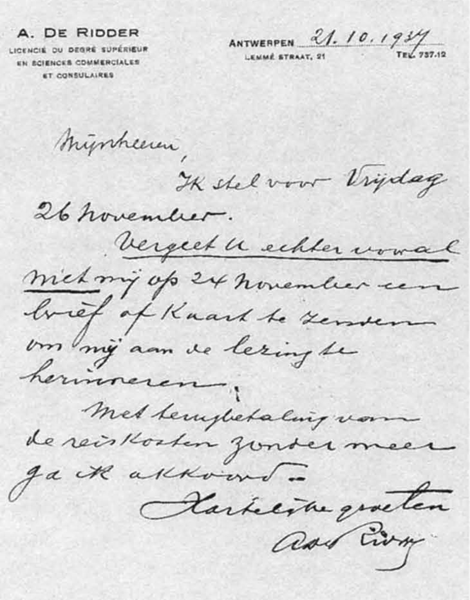 A. DE RIDDER
LICENCIÉ DU DEGRÉ SUPÉRIEUR
EN SCIENCES COMMERCIALES
ET CONSULAIRES
ANTWERPEN 21.10.1937
LEMMÉ STRAAT, 21 TEL. 737.12
Mijnheeren,
Ik stel voor Vrijdag
26 November.
Vergeet U echter vooral
niet mij op 24 November een
brief of kaart te zenden
om mij aan de lezing te
herinneren.
Met terugbetaling van
de reiskosten zonder meer
ga ik akkoord.
Hartelijke groeten